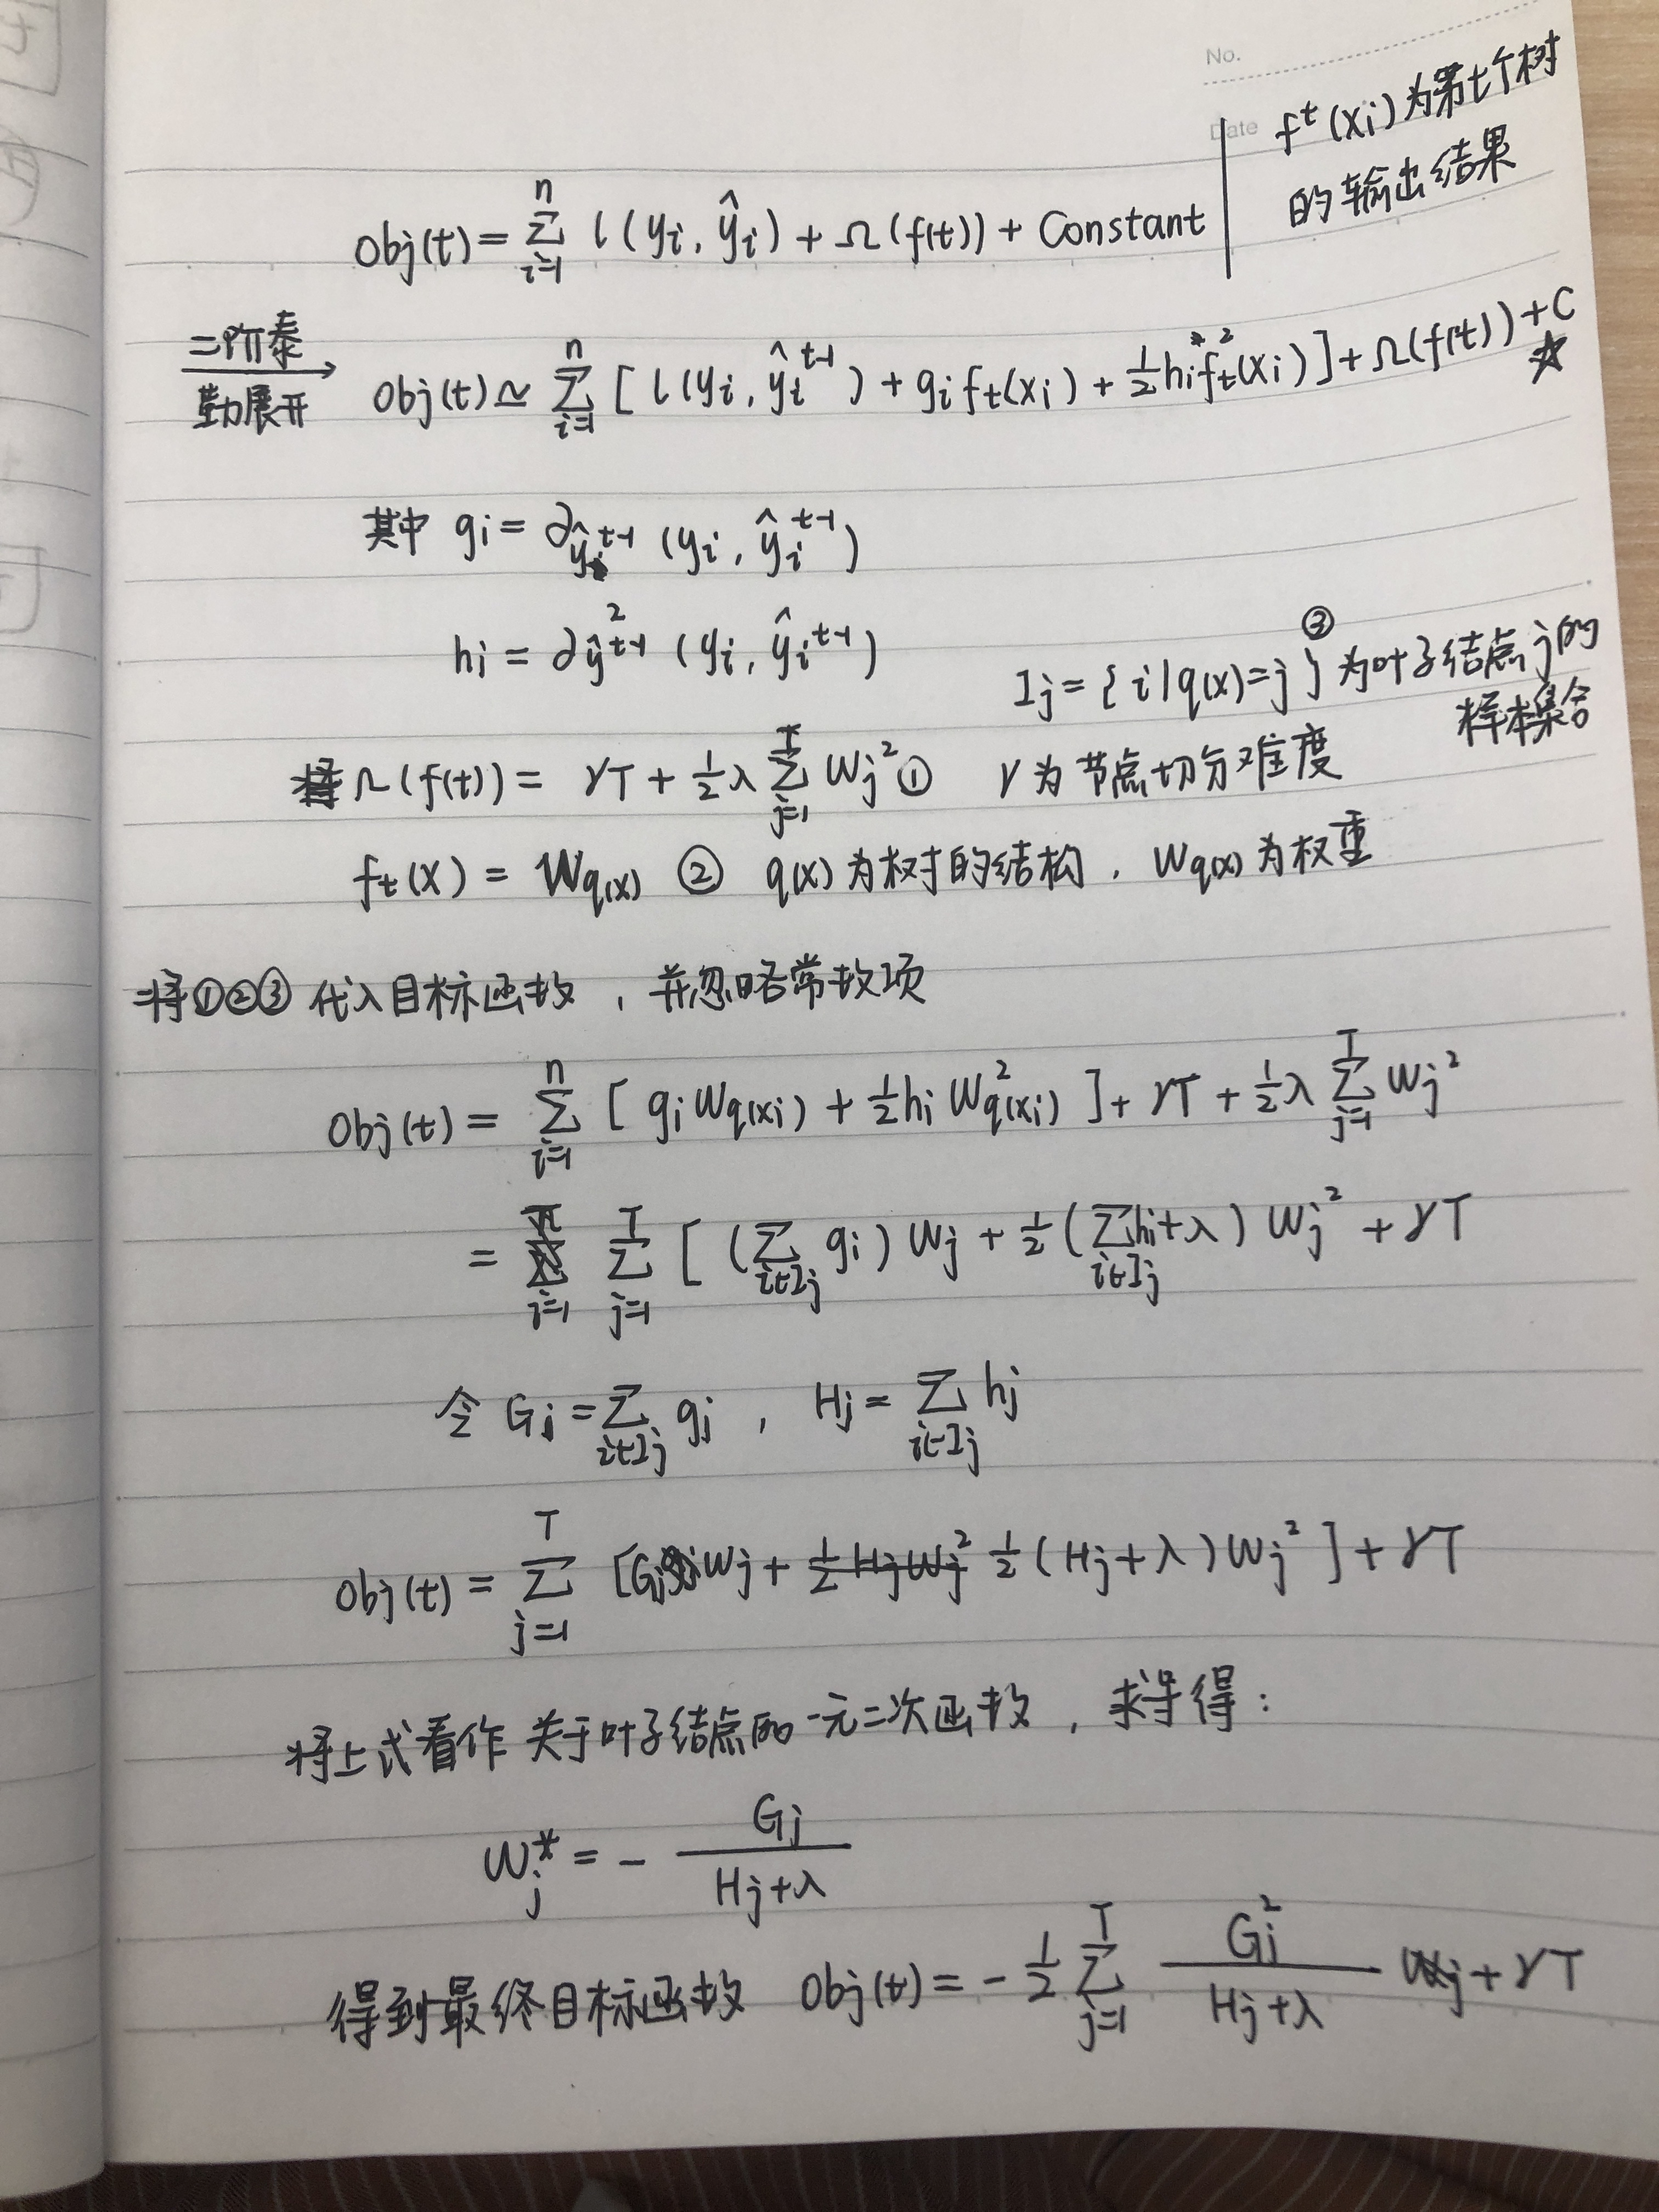 No.
Date
f^t(xi)为第t个树
的输出结果
Obj(t) = Σ_{i=1}^{n} l(yi, ŷi) + Ω(f(t)) + Constant
二阶泰
勒展开
Obj(t) ≃ Σ_{i=1}^{n} [l(yi, ŷi^{t-1}) + gi ft(xi) + 1/2 hi ft²(xi)] + Ω(f(t)) + C
其中 gi = ∂_{ŷ^{t-1}} (yi, ŷi^{t-1})
hi = ∂²_{ŷ^{t-1}} (yi, ŷi^{t-1})
③
Ij = {i|q(x)=j} 为叶子结点j的
样本集合
Ω(f(t)) = γT + 1/2 λ Σ_{j=1}^{T} Wj² ① γ为节点切分难度
ft(x) = W_{q(x)} ② q(x)为树的结构, W_{q(x)}为权重
将①②③代入目标函数, 并忽略常数项
Obj(t) = Σ_{i=1}^{n} [gi W_{q(xi)} + 1/2 hi W²_{q(xi)}] + γT + 1/2 λ Σ_{j=1}^{T} Wj²
= Σ_{j=1}^{T} [(Σ_{i∈Ij} gi) Wj + 1/2 (Σ_{i∈Ij} hi + λ) Wj² + γT
令 Gj = Σ_{i∈Ij} gj, Hj = Σ_{i∈Ij} hj
Obj(t) = Σ_{j=1}^{T} [Gj Wj + 1/2 (Hj + λ) Wj²] + γT
将上式看作关于叶子结点的一元二次函数, 求导得:
Wj* = - Gj / (Hj + λ)
得到最终目标函数 Obj(t) = - 1/2 Σ_{j=1}^{T} Gj² / (Hj + λ) + γT